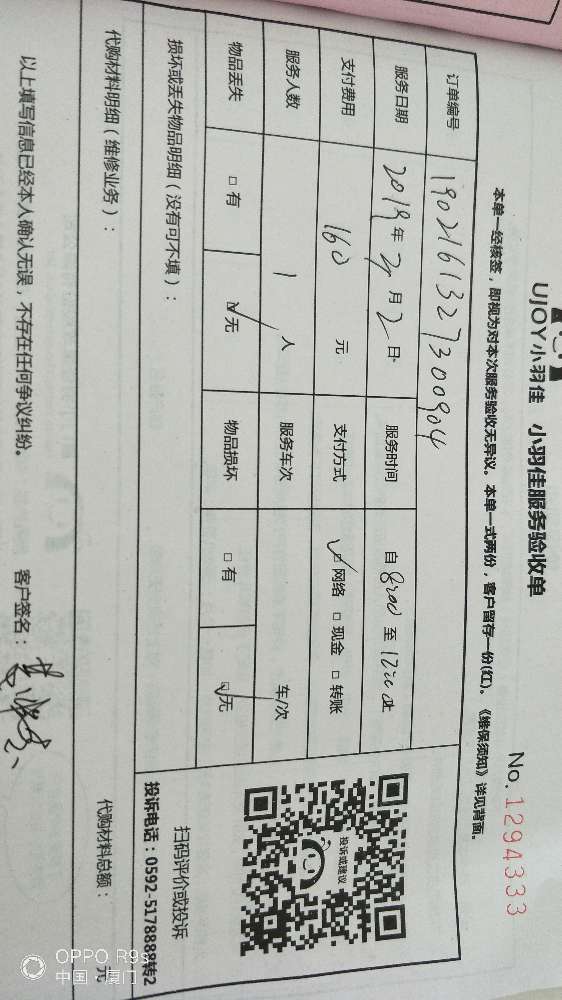 UJOY小羽佳 小羽佳服务验收单
No. 1294333
本单一经核签，即视为对本次服务验收无异议。本单一式两份，客户留存一份(红)。《维保须知》详见背面。
订单编号 1902161327300904
服务日期 2019年2月2日 服务时间 自8:00至12:00止
支付费用 160元 支付方式 ☑网络 □现金 □转账
服务人数 1人 服务车次 车/次
物品丢失 □有 ☑无 物品损坏 □有 ☑无
损坏或丢失物品明细（没有可不填）：
投诉或建议
扫码评价或投诉
投诉电话：0592-5178889转2
代购材料明细（维修业务）：
代购材料总额： 元
以上填写信息已经本人确认无误，不存在任何争议纠纷。 客户签名：
OPPO R9s
中国·厦门